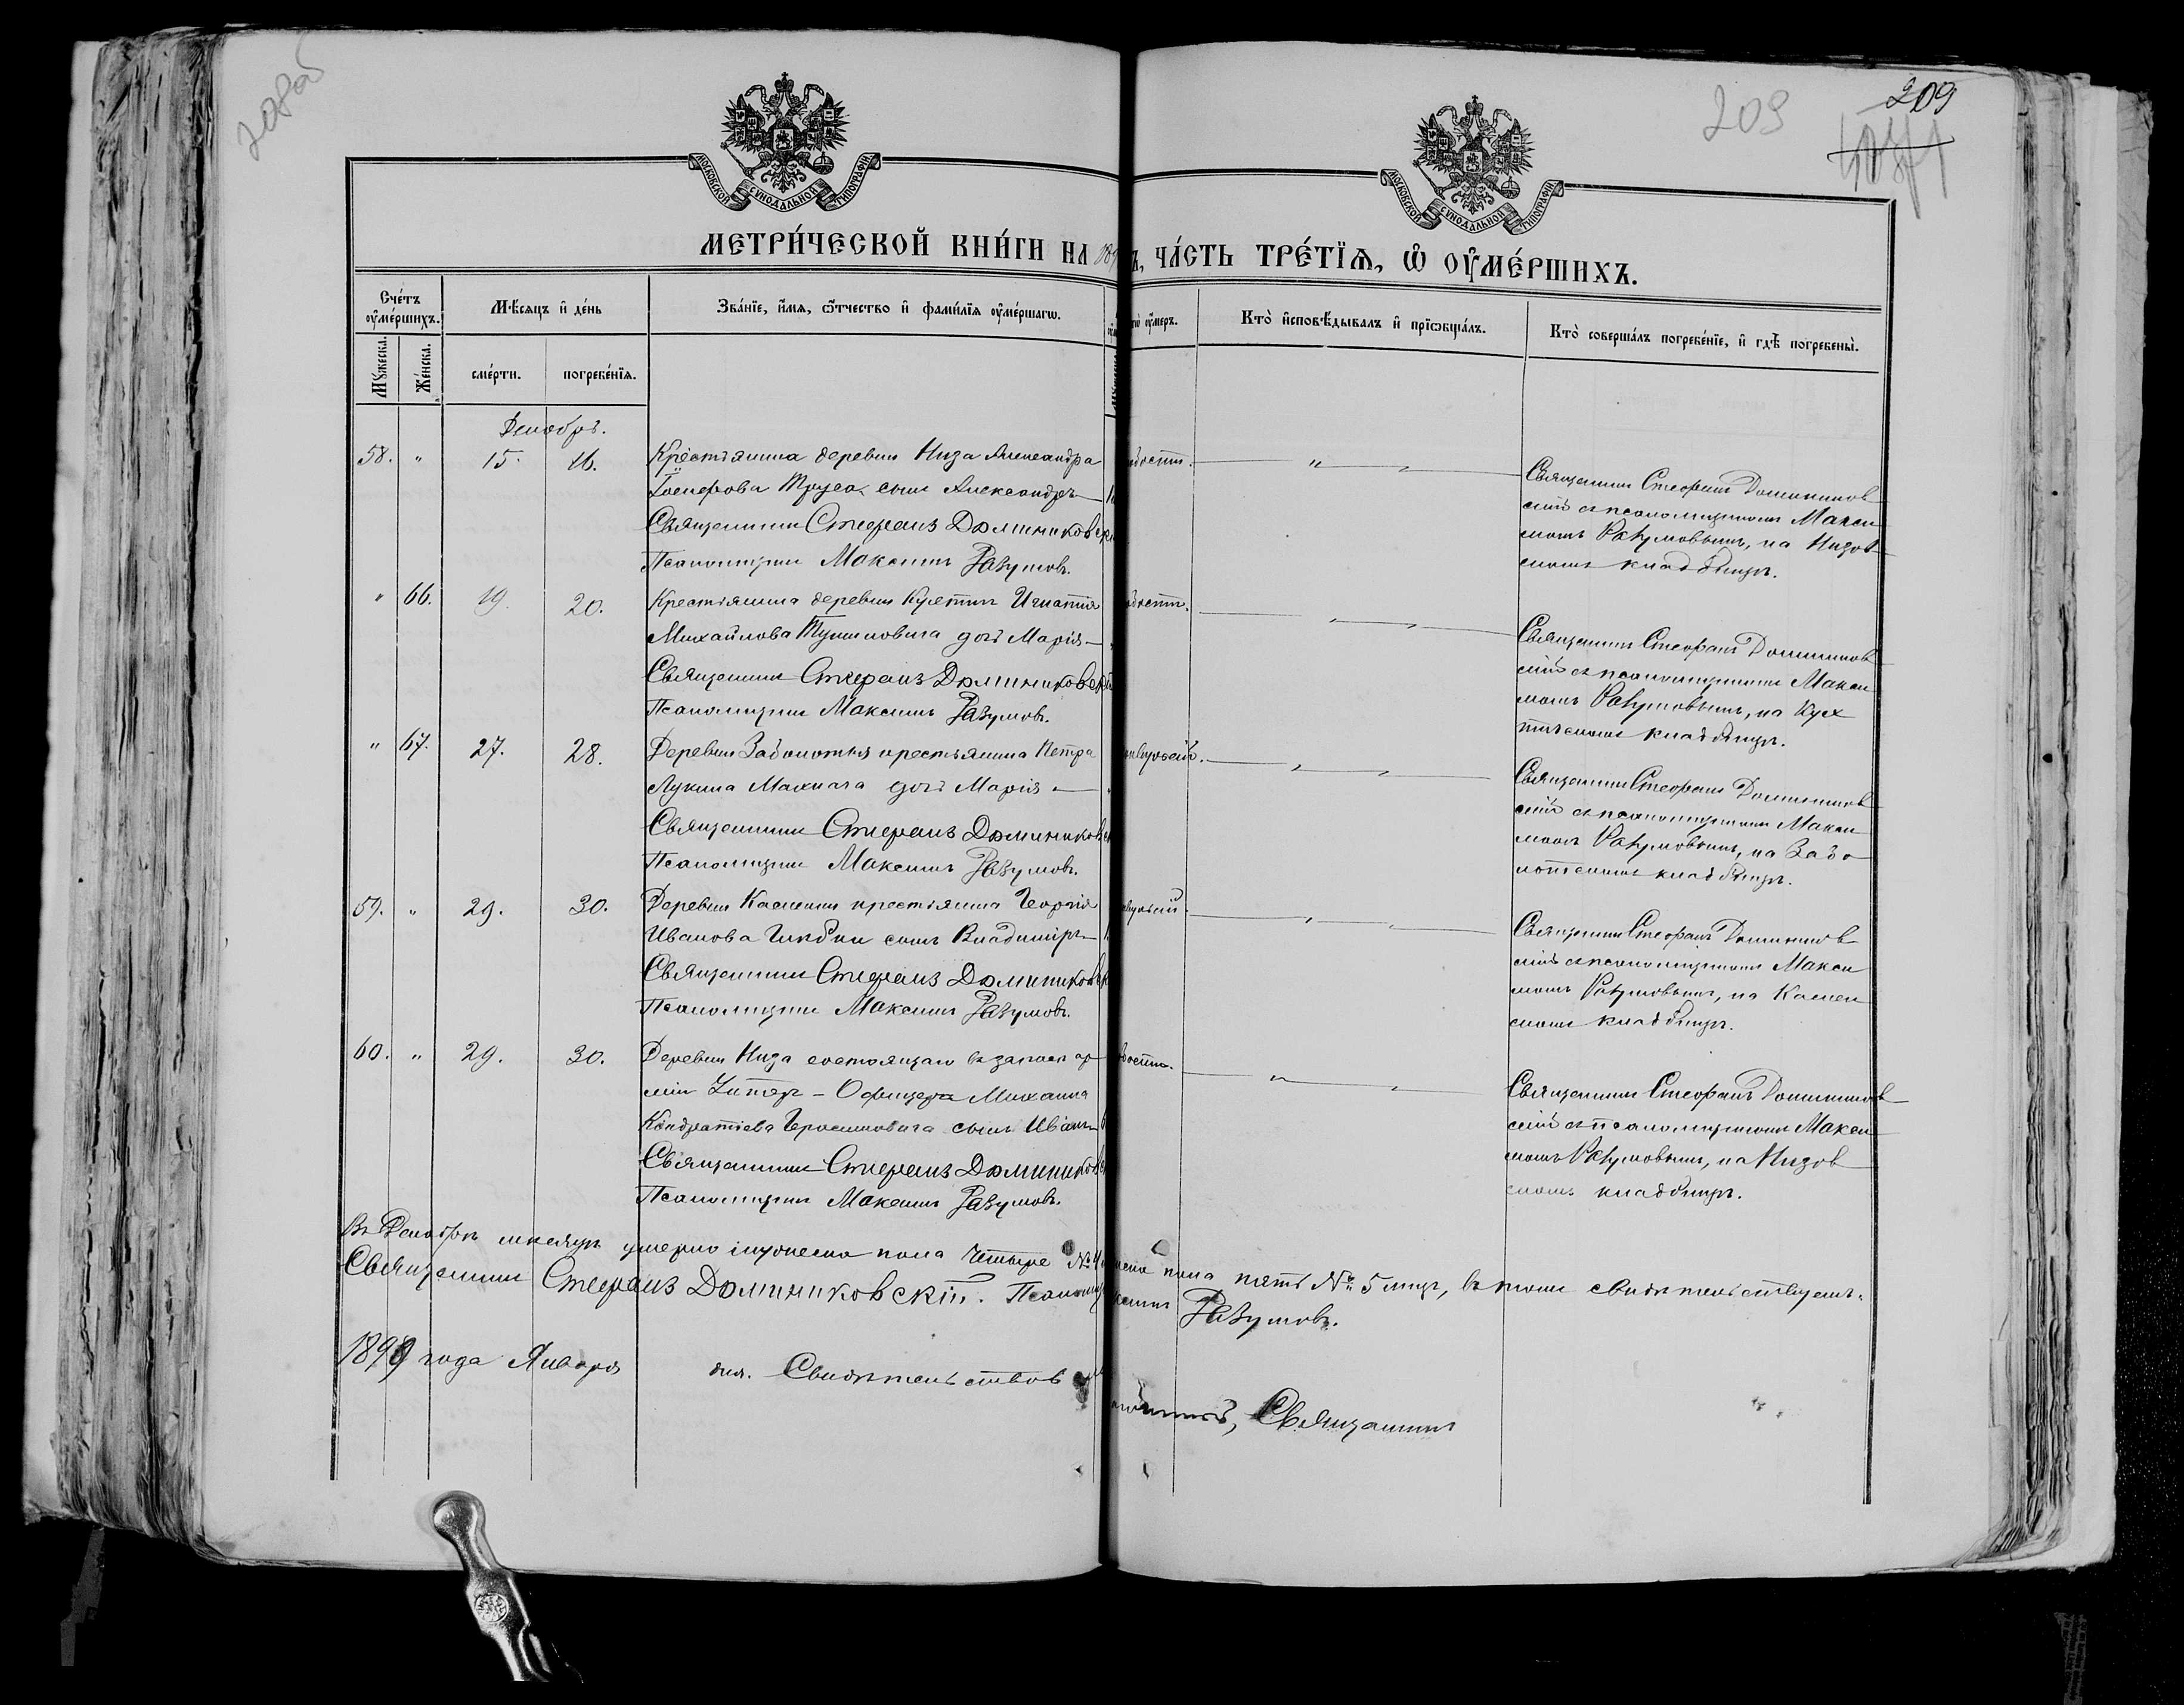 208об
209
209
МОСКОВСКОЙ СѴНОДАЛЬНОЙ ТИПОГРАФІИ
МОСКОВСКОЙ СѴНОДАЛЬНОЙ ТИПОГРАФІИ
МЕТРИ́ЧЕСКОЙ КНИ́ГИ НА 189 Ъ, ЧА́СТЬ ТРЕ́ТЇѦ, Ѡ҆ ОУ҆МЕ́РШИХЪ.
Сче́тъ оу҆ме́ршихъ.
Мѣ́сяцъ и҆ де́нь
Зва́нїе, и҆́мя, ѻ҆́тчество и҆ фами́лїя оу҆ме́ршагѡ.
оу҆́меръ.
Кто̀ и҆сповѣ́дывалъ и҆ прїѡбща́лъ.
Кто̀ соверша́лъ погребе́нїе, и҆ гдѣ̀ погребены̀.
Мꙋ́жеска.
Же́нска.
сме́рти.
погребе́нїя.
Декабрь.
58. " 15. 16. Крестьянина деревни Низа Александра
Іосифова сынъ Александръ
Священникъ Стефанъ Доминиковскі
Псаломщикъ Максимъ Разумовъ.
" —
Священникъ Стефанъ Домиников
скій съ псаломщикомъ Макси
момъ Разумовымъ, на Низов
скомъ кладбищѣ.
" 66. 19. 20. Крестьянина деревни Игнатія
Михайлова дочь Марія
Священникъ Стефанъ Доминиковскій
Псаломщикъ Максимъ Разумовъ.
Священникъ Стефанъ Домиников
скій съ псаломщикомъ Макси
момъ Разумовымъ, на
кладбищѣ.
" 67. 27. 28. Деревни Заболотья крестьянина Петра
Лукина Махнача дочь Марія
Священникъ Стефанъ Доминиковс
Псаломщикъ Максимъ Разумовъ.
Священникъ Стефанъ Домиников
скій съ псаломщикомъ Макси
момъ Разумовымъ, на Забо
лотскомъ кладбищѣ.
59. " 29. 30. Деревни Каменки крестьянина Георгія
Иванова сынъ Владиміръ
Священникъ Стефанъ Доминиковск
Псаломщикъ Максимъ Разумовъ.
Священникъ Стефанъ Домиников
скій съ псаломщикомъ Макси
момъ Разумовымъ, на Камен
скомъ кладбищѣ.
60. " 29. 30. Деревни Низа состоящаго въ запасѣ ар
міи Унтеръ-Офицера Михаила
Кондратіева Герасимовича сынъ Иванъ
Священникъ Стефанъ Доминиковс
Псаломщикъ Максимъ Разумовъ.
Священникъ Стефанъ Домиников
скій съ псаломщикомъ Макси
момъ Разумовымъ, на Низов
скомъ кладбищѣ.
Въ Декабрѣ мѣсяцѣ умерло мужеска пола Четыре № 4 нска пола пять № 5 лицъ, въ томъ свидѣтельствуемъ.
Священникъ Стефанъ Доминиковскій. Псаломщ ксимъ Разумовъ.
1899 года Января дня. Свидѣтельствов
Священникъ